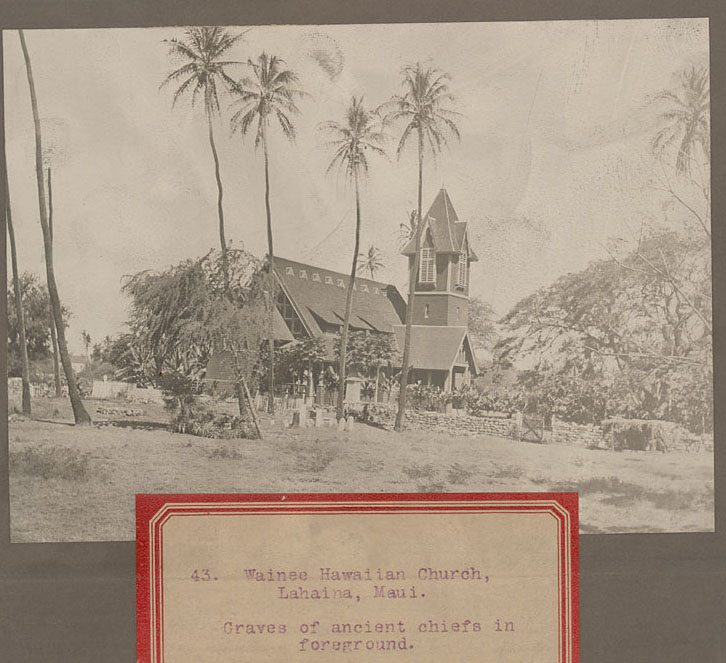 43. Wainee Hawaiian Church,
Lahaina, Maui.
Graves of ancient chiefs in
foreground.